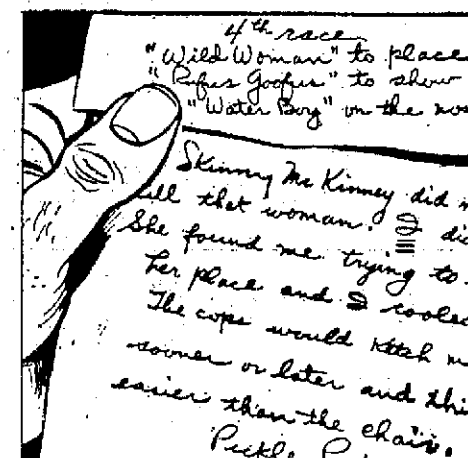 4th race
"Wild Woman" to place
"Rufus Goofus" to show
"Water Boy" on the
Skinny McKinney did
that woman. I
She found me trying to
her place and I cooled
The cops would ketch
sooner or later and
easier than the chair.
Pickle